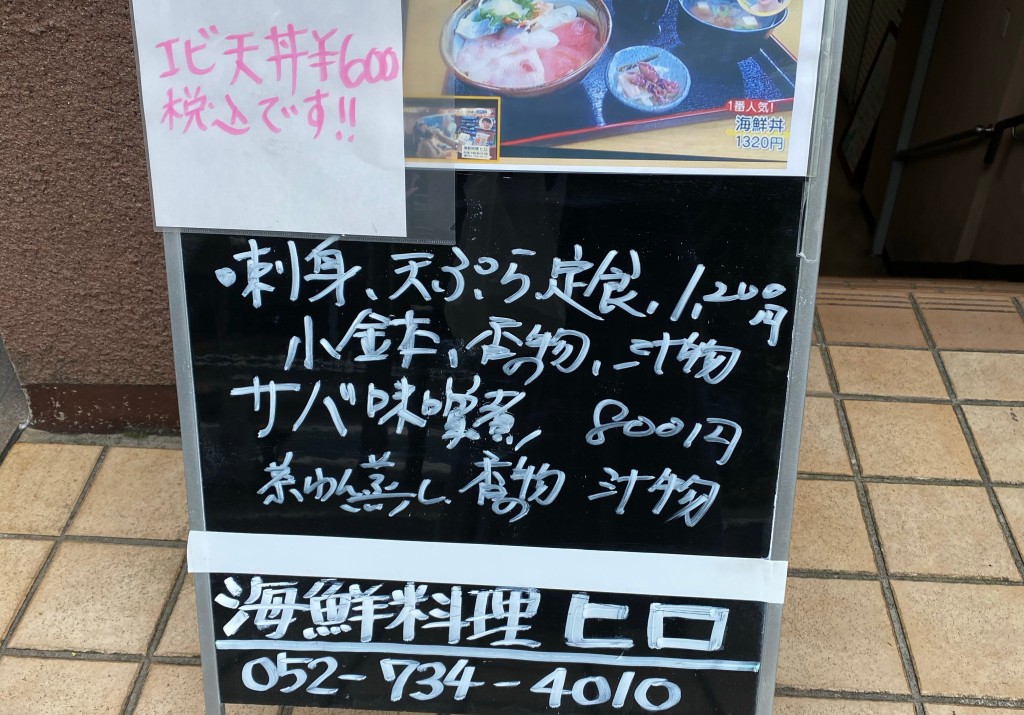 エビ天丼¥600
税込です!!
1番人気!
海鮮丼
1320円
・刺身、天ぷら定食、1,200円
小鉢、香の物、汁物
サバ味噌煮、800円
茶わん蒸し、香の物 汁物
海鮮料理 ヒロ
052-734-4010